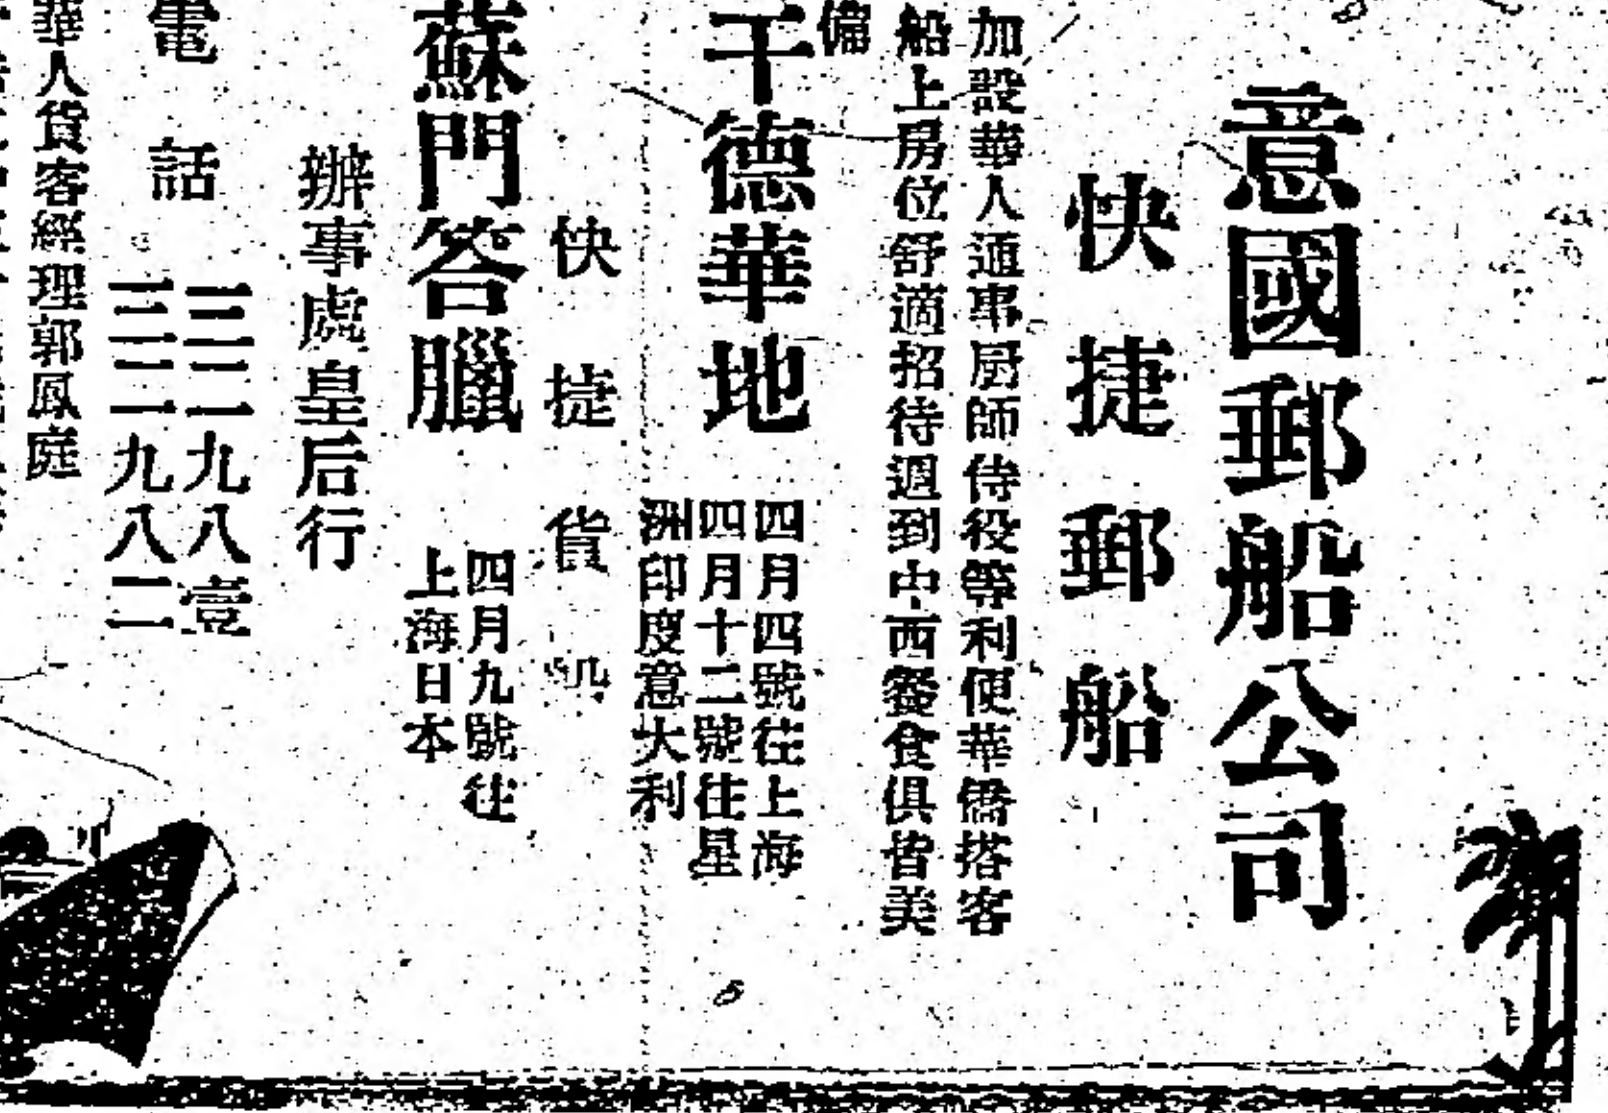 意國郵船公司
快捷郵船
加設華人通事厨師侍役等利便華僑搭客
船上房位舒適招待週到中西餐食俱皆美
備
干德華地
四月四號往上海
四月十二號往星
洲印度意大利
快捷貨
蘇門答臘
四月九號往
上海日本
辦事處皇后行
電話
三二二九八壹
三二二九八二
華人貨客經理郭鳳庭